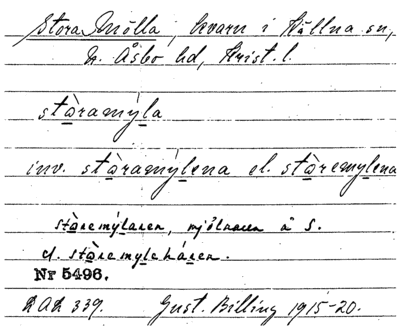 Stora Mölla, kvarn i Källna sn,
N. Åsbo hd, Krist. l.
stòramýla
inv. stòramýlena el. stòremylena
stòremýlaren, mjölnaren å S.
el. stòremylekáren.
Nr 5496.
DAL 339. Gust. Billing 1915-20.